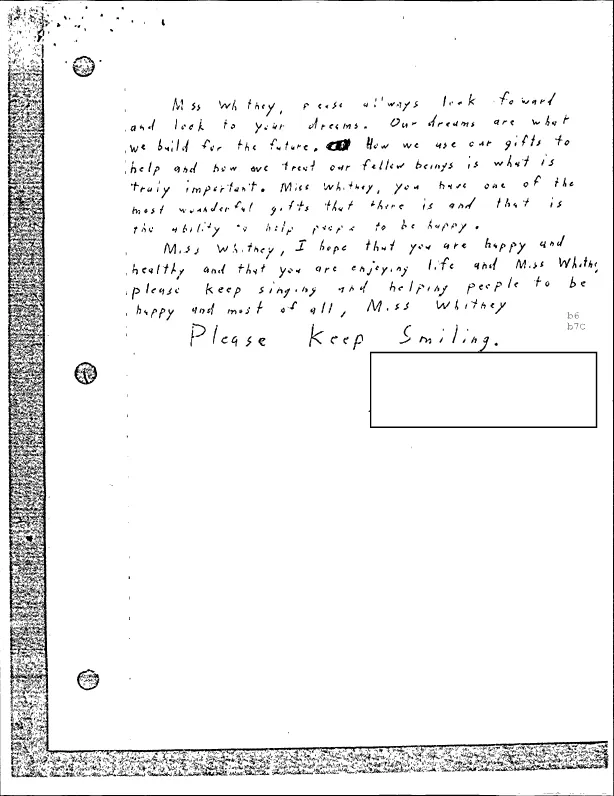 Miss Whitney, please allways look foward
and look to your dreams. Our dreams are what
we build for the future. How we use our gifts to
help and how we treat our fellow beings is what is
truly important. Miss Whitney, you have one of the
most wounderful gifts that there is and that is
the ability to help people to be happy.
Miss Whitney, I hope that you are happy and
healthy and that you are enjoying life and Miss Whitne
please keep singing and helping people to be
happy and most of all, Miss Whitney
b6
b7C
Please Keep Smiling.